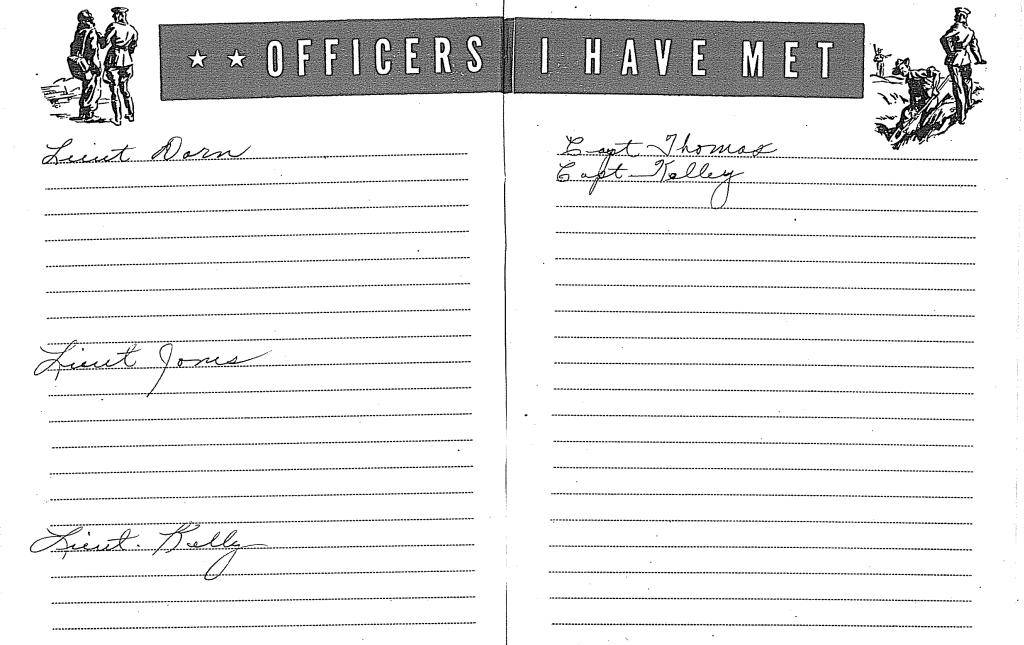 ★ ★ OFFICERS I HAVE MET
Lieut Dorn
Lieut Jones
Lieut. Kelly
Capt Thomas
Capt. Kelley